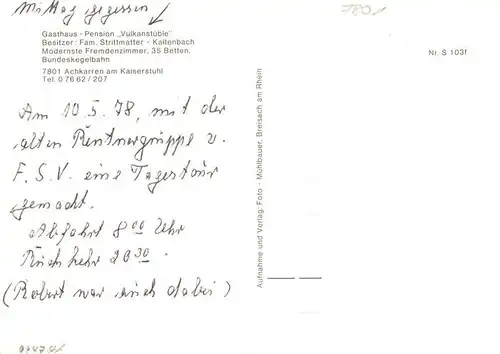 Mittag gegessen
7801
Gasthaus - Pension „Vulkanstüble"
Besitzer: Fam. Strittmatter - Kaltenbach
Modernste Fremdenzimmer, 35 Betten,
Bundeskegelbahn
7801 Achkarren am Kaiserstuhl
Tel. 0 76 62 / 207
Nr. S 103f
Am 10.5.78, mit der
alten Rentnergruppe v.
F.S.V. eine Tagestour
gemacht.
Abfahrt 8 00 Uhr
Rückkehr 20 30.
(Robert war auch dabei)
Aufnahme und Verlag: Foto - Mühlbauer, Breisach am Rhein